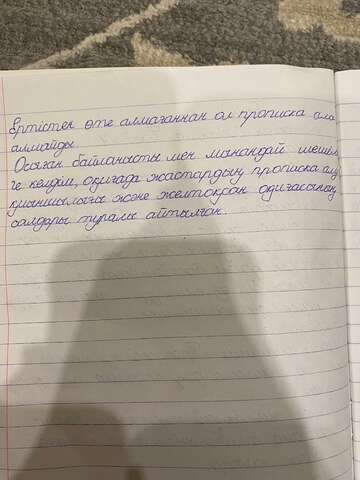 Ертістен өте алмағаннан ол прописка ала
алмайды
Осыған байланысты мен мынандай шешім
ге келдім, оқиғада жастардың прописка алу
қиыншылығы және желтоқсан оқиғасының
салдары туралы айтылған.